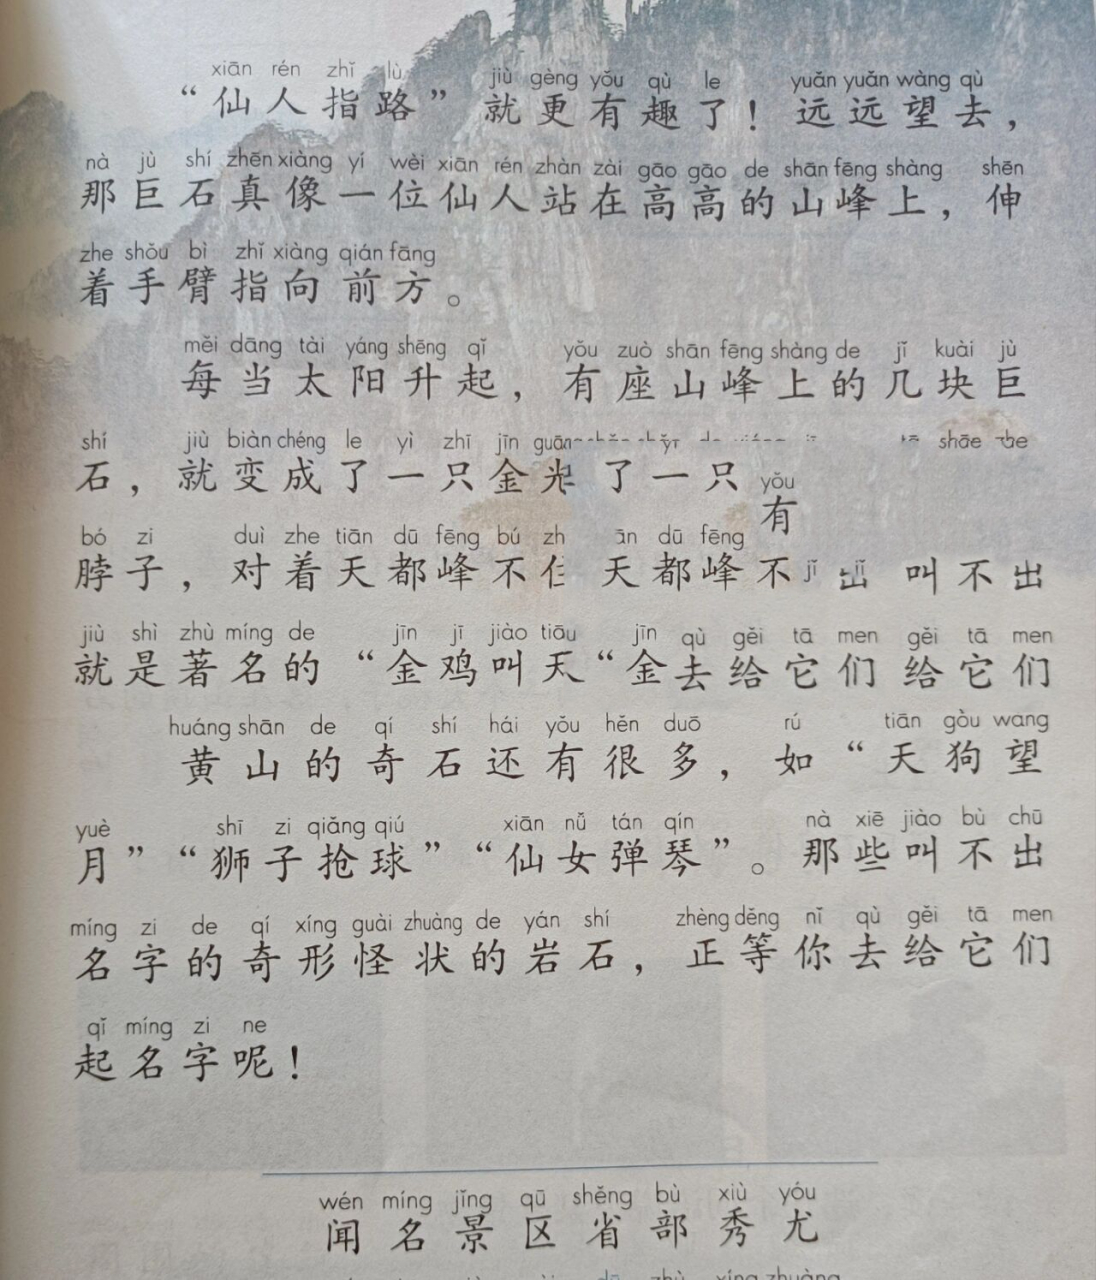 xiān rén zhǐ lù jiù gèng yǒu qù le yuǎn yuǎn wàng qù
“仙人指路”就更有趣了！远远望去，
nà jù shí zhēn xiàng yí wèi xiān rén zhàn zài gāo gāo de shān fēng shàng shēn
那巨石真像一位仙人站在高高的山峰上，伸
zhe shǒu bì zhǐ xiàng qián fāng
着手臂指向前方。
měi dāng tài yáng shēng qǐ yǒu zuò shān fēng shàng de jǐ kuài jù
每当太阳升起，有座山峰上的几块巨
shí jiù biàn chéng le yì zhī jīn
石，就变成了一只金 了一只
yǒu
有
bó zi duì zhe tiān dū fēng bú dū fēng
脖子，对着天都峰不 天都峰不 叫不出
jiù shì zhù míng de jīn jī jiào jīn qù gěi tā men gěi tā men
就是著名的“金鸡叫天“金去给它们 给它们
huáng shān de qí shí hái yǒu hěn duō rú tiān gǒu wàng
黄山的奇石还有很多，如“天狗望
yuè shī zi qiǎng qiú xiān nǚ tán qín nà xiē jiào bù chū
月”“狮子抢球”“仙女弹琴”。那些叫不出
míng zi de qí xíng guài zhuàng de yán shí zhèng děng nǐ qù gěi tā men
名字的奇形怪状的岩石，正等你去给它们
qǐ míng zi ne
起名字呢！
wén míng jǐng qū shěng bù xiù yóu
闻名景区省部秀尤